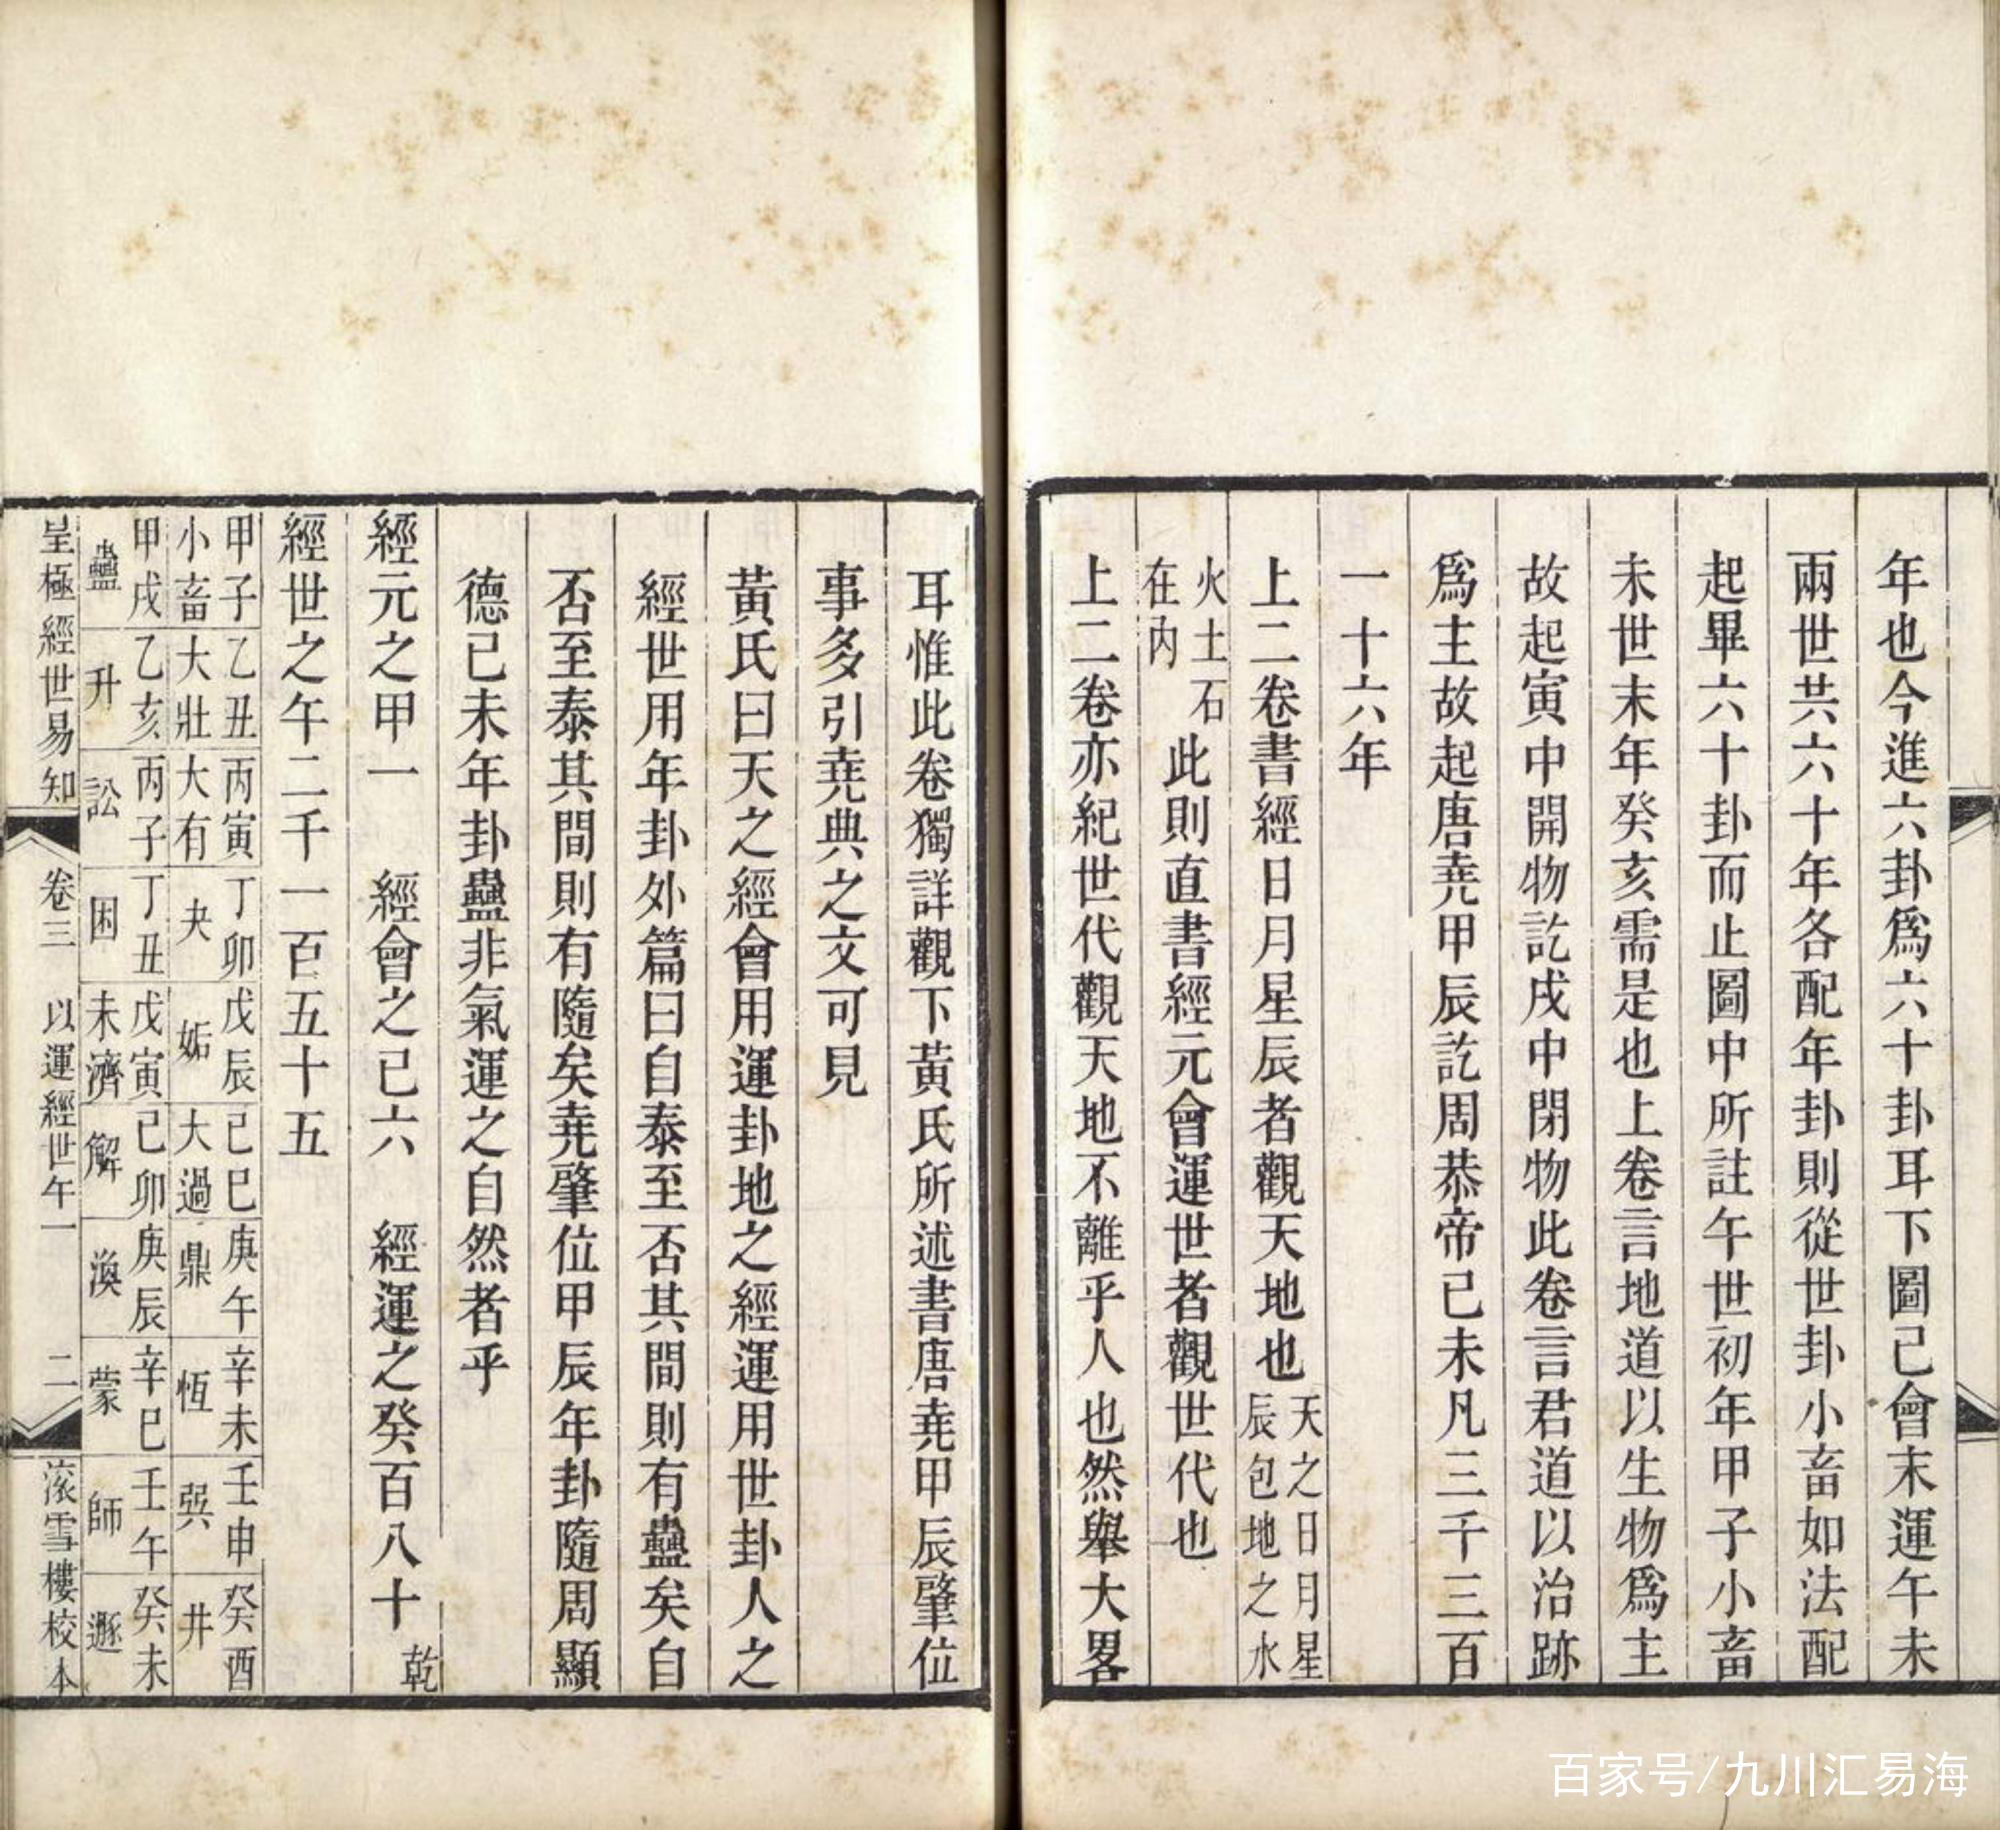 年也今進六卦爲六十卦耳下圖已會末運午未
兩世共六十年各配年卦則從世卦小畜如法配
起畢六十卦而止圖中所註午世初年甲子小畜
未世末年癸亥需是也上卷言地道以生物爲主
故起寅中開物訖戌中閉物此卷言君道以治跡
爲主故起唐堯甲辰訖周恭帝己未凡三千三百
一十六年
上二卷書經日月星辰者觀天地也天之日月星
辰包地之水
火土石
在內
此則直書經元會運世者觀世代也
上二卷亦紀世代觀天地不離乎人也然舉大畧
耳惟此卷獨詳觀下黃氏所述書唐堯甲辰肇位
事多引堯典之文可見
黃氏曰天之經會用運卦地之經運用世卦人之
經世用年卦外篇曰自泰至否其間則有蠱矣自
否至泰其間則有隨矣堯肇位甲辰年卦隨周顯
德己未年卦蠱非氣運之自然者乎
經元之甲一 經會之巳六 經運之癸百八十 乾
經世之午二千一百五十五
甲子 乙丑 丙寅 丁卯 戊辰 己巳 庚午 辛未 壬申 癸酉
小畜 大壯 大有 夬 姤 大過 鼎 恆 巽 井
甲戌 乙亥 丙子 丁丑 戊寅 己卯 庚辰 辛巳 壬午 癸未
蠱 升 訟 困 未濟 解 渙 蒙 師 遯
皇極經世易知 卷三 以運經世午一 二 滾雪樓校本
百家号/九川汇易海